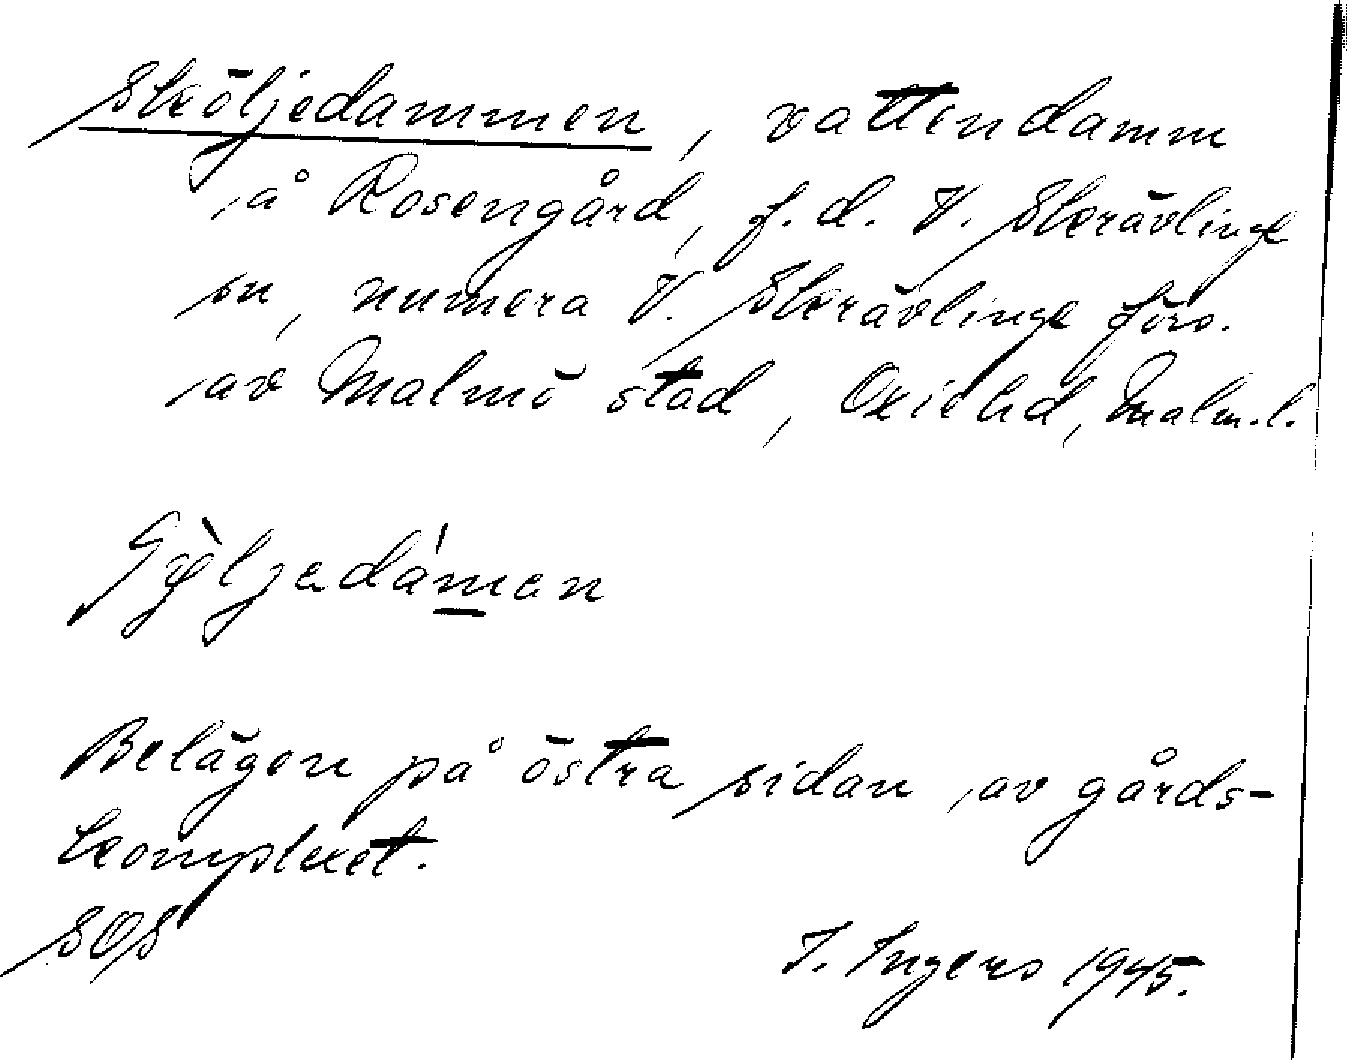 Sköljedammen, vattendamm
å Rosengård, f.d. V. Skrävlinge
sn, numera V. Skrävlinge förs.
av Malmö stad, Oxie hd, Malm.l.
Belägen på östra sidan av gårds-
komplexet.
SOS
I. Ingers 1945.